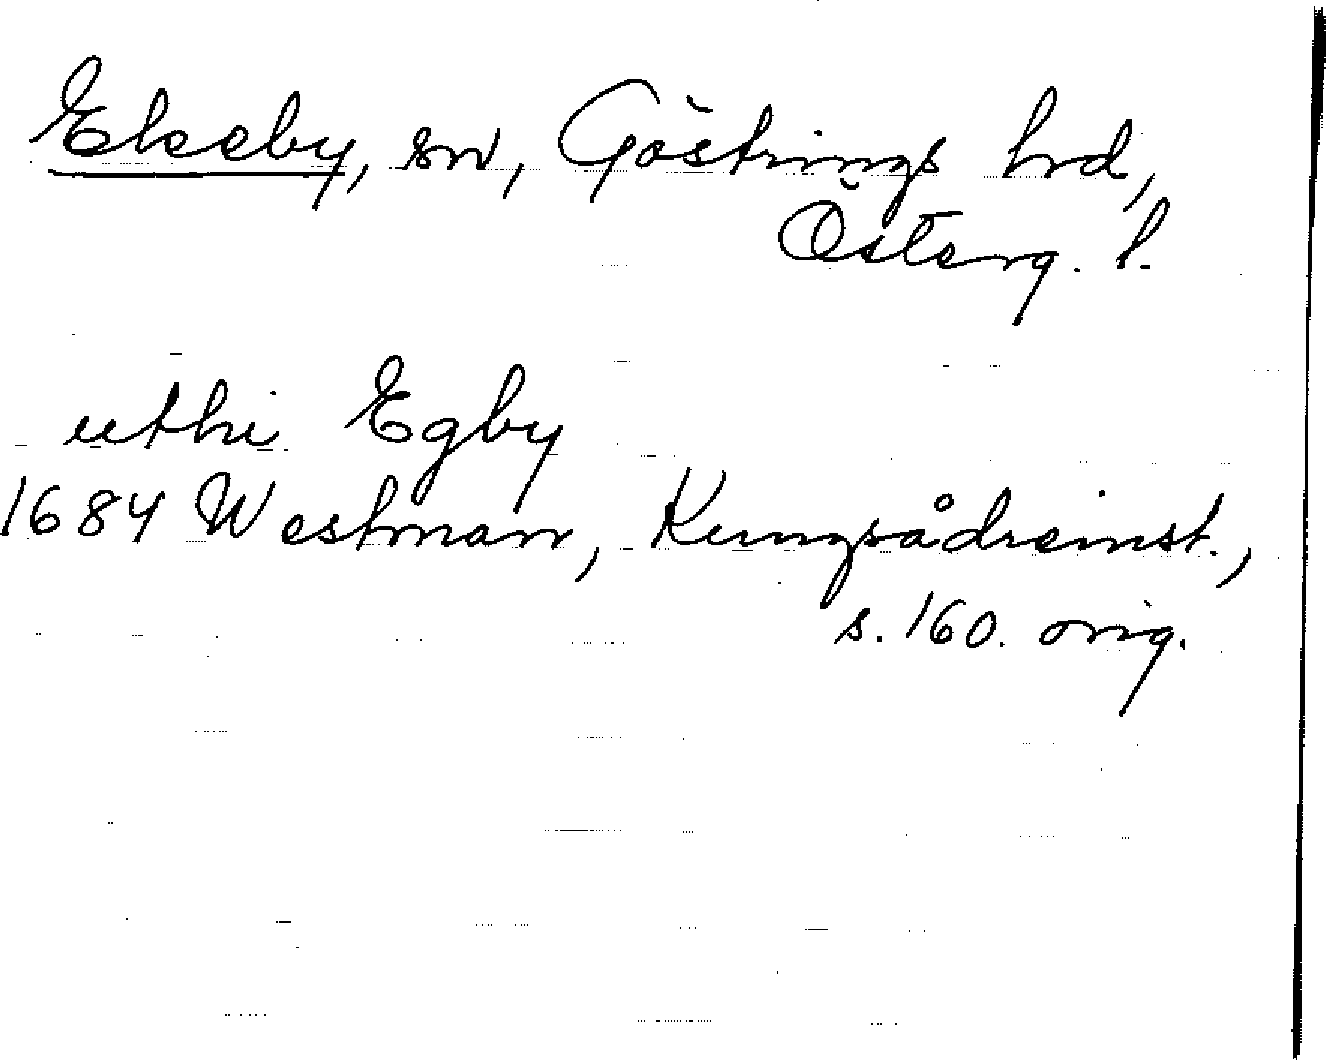 Ekeby, sn, Göstrings hrd,
Österg. l.
uthi Egby
1684 Westman, Kungsådreinst.,
s. 160. orig.